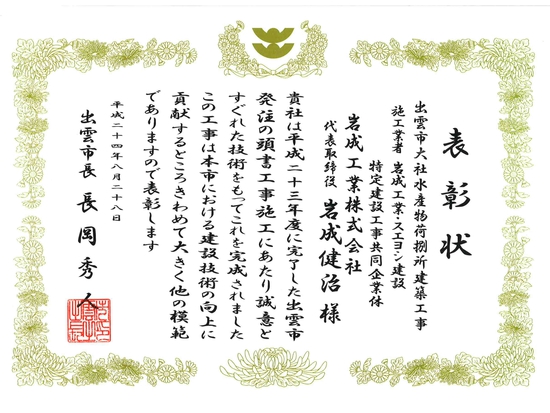 表彰状
出雲市大社水産物荷捌所建築工事
施工業者 岩成工業・スエヨシ建設
特定建設工事共同企業体
岩成工業株式会社
代表取締役 岩成健治 様
貴社は平成二十三年度に完了した出雲市
発注の頭書工事施工にあたり誠意と
すぐれた技術をもってこれを完成されました
この工事は本市における建設技術の向上に
貢献するところきわめて大きく他の模範
でありますので表彰します
平成二十四年八月二十八日
出雲市長 長岡秀人